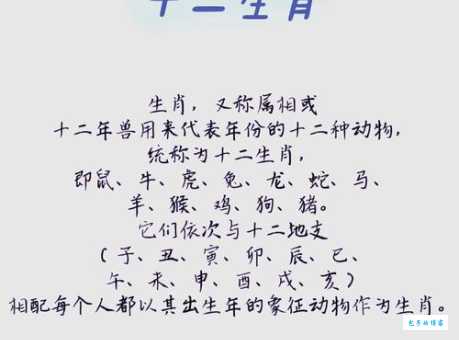 十二生肖
生肖，又称属相或
十二年兽用来代表年份的十二种动物，
统称为十二生肖，
即鼠、牛、虎、兔、龙、蛇、马、
羊、猴、鸡、狗、猪。
它们依次与十二地支
（子、丑、寅、卯、辰、巳、
午、未、申、酉、戌、亥）
相配每个人都以其出生年的象征动物作为生肖。